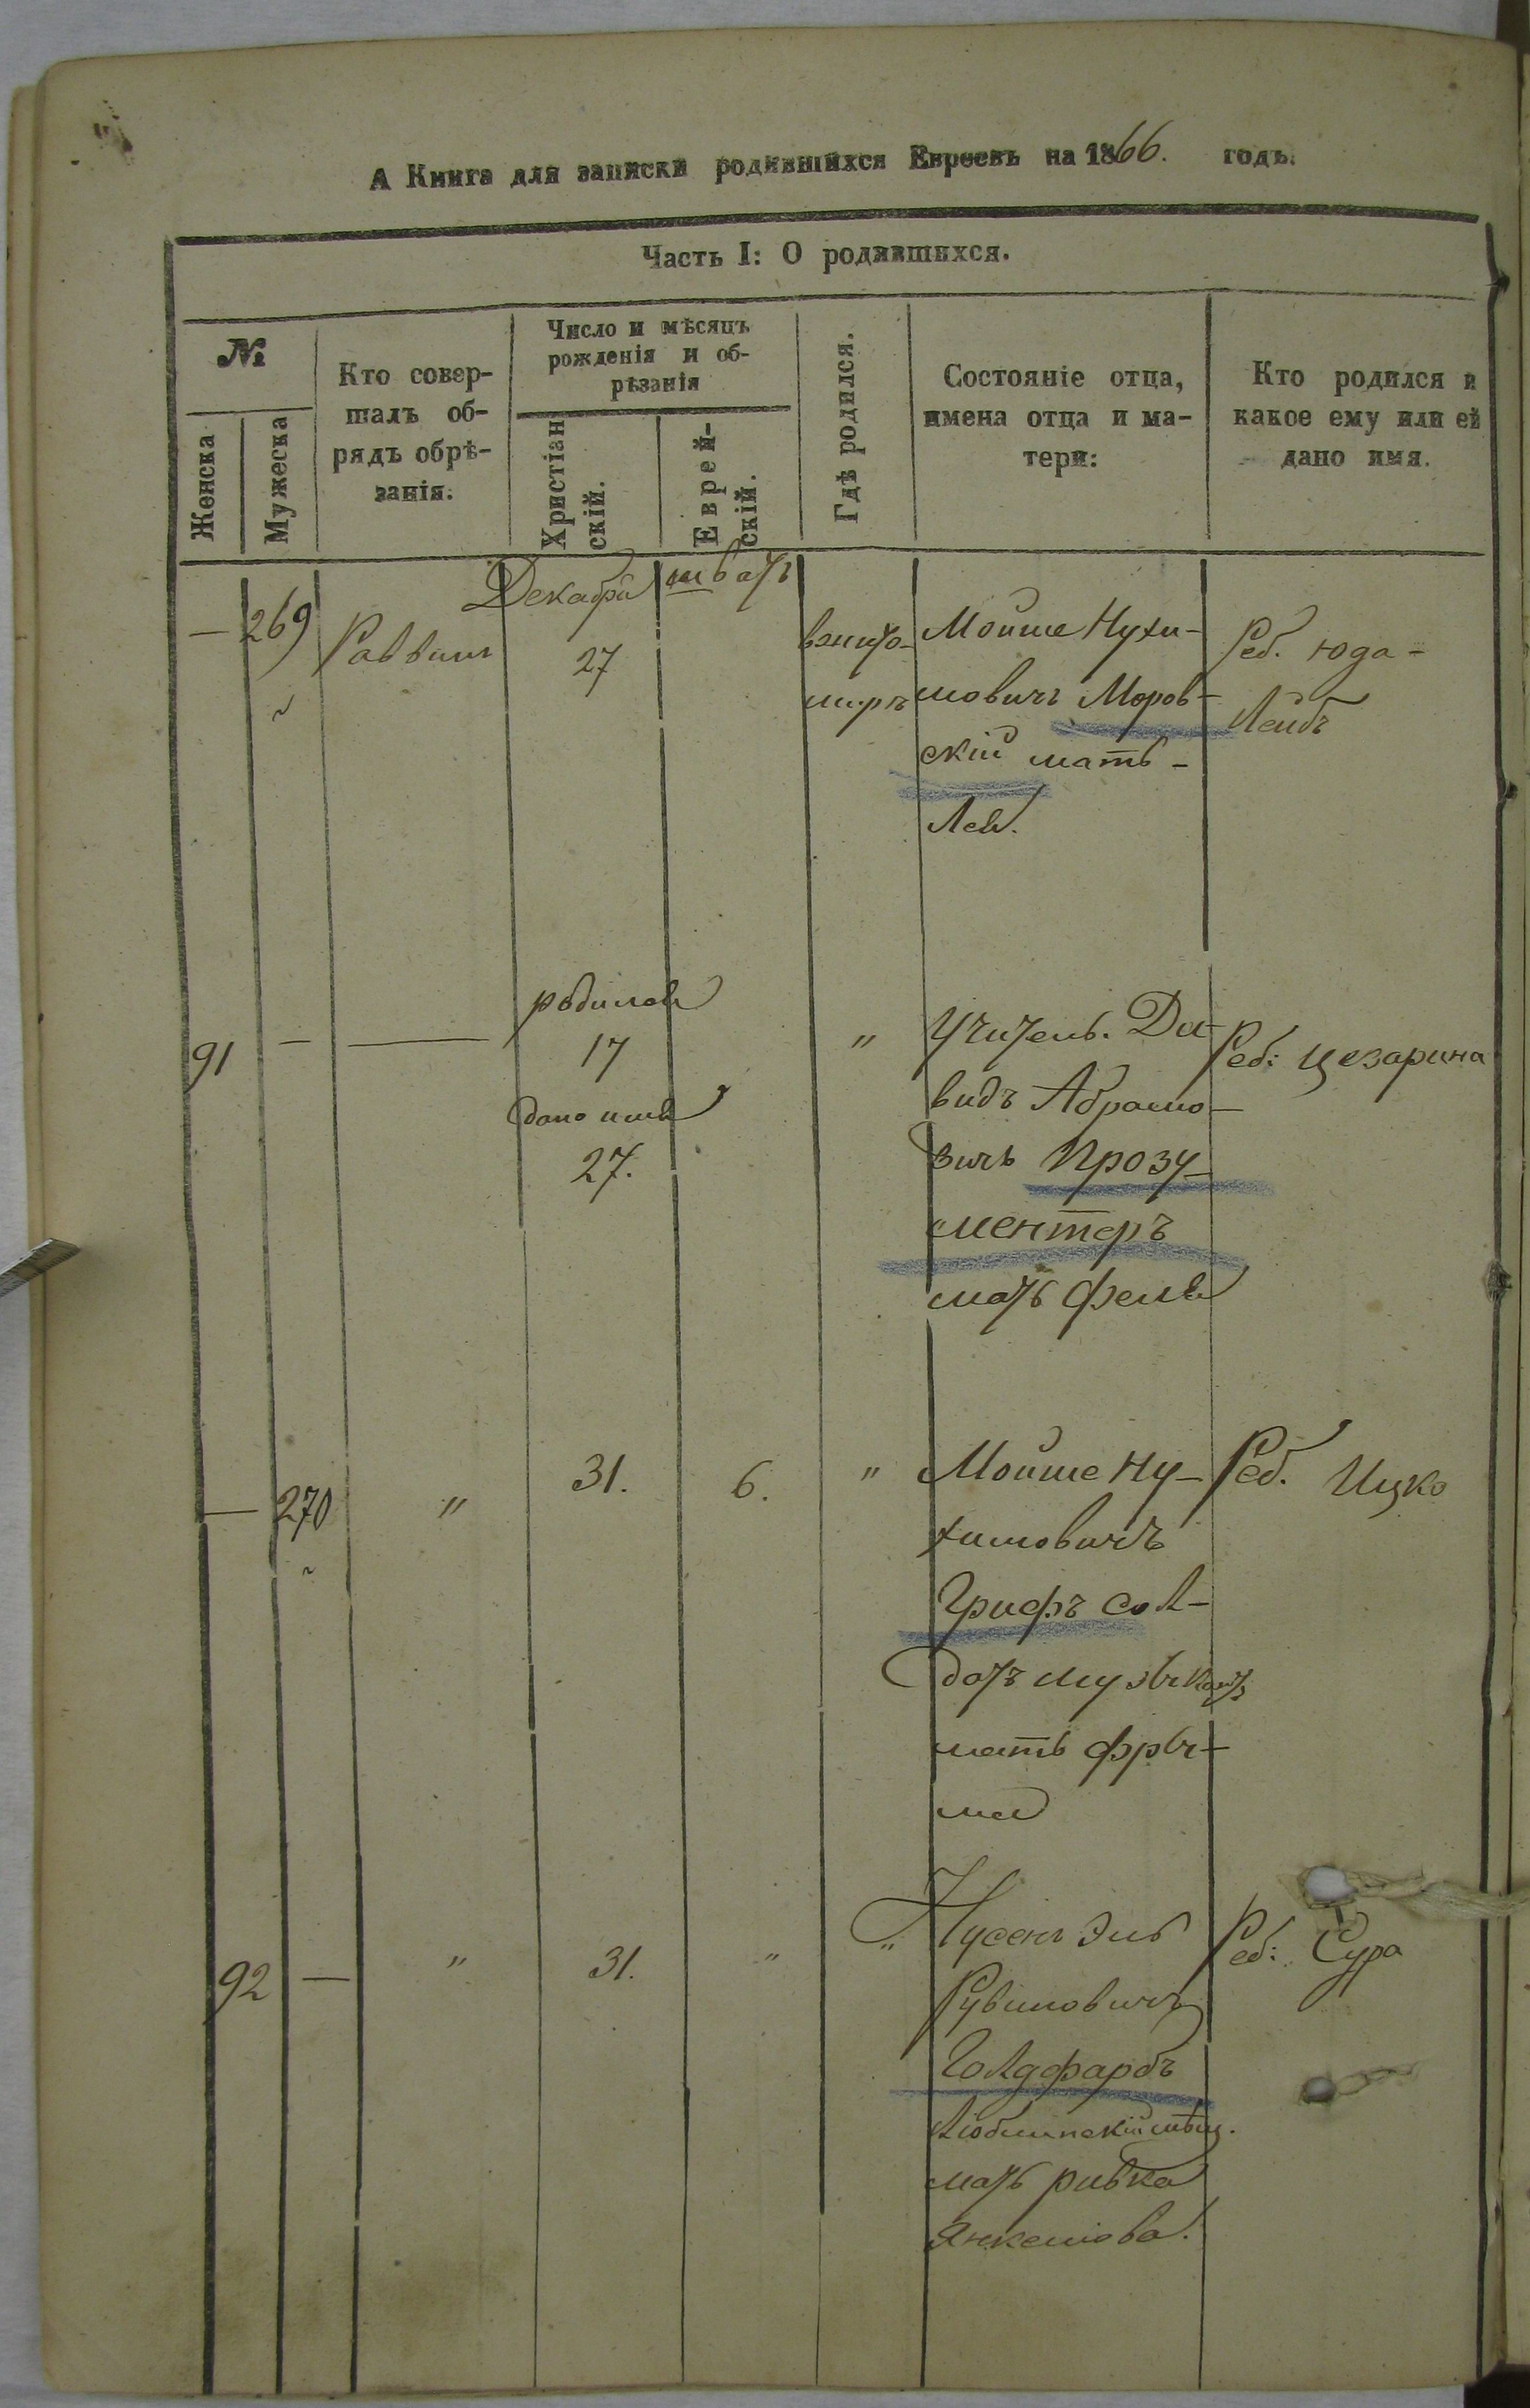 А Книга для записки родившихся Евреевъ на 1866. годъ.
Часть I: О родившихся.
№
Женска
Мужеска
Кто совер-
шалъ об-
рядъ обрѣ-
занія.
Число и мѣсяцъ
рожденія и об-
рѣзанія
Христіан
скій.
Еврей-
скій.
Гдѣ родился.
Состояніе отца,
имена отца и ма-
тери:
Кто родился и
какое ему или ей
дано имя.
Декабрь
шватъ
— 269
Раввинъ
27
вжито-
миръ
Мойше Нухи-
мовичъ Моров-
скій мать -
Лея.
Реб. Юда -
Лейбъ
91 —
родилась
17
дано имя
27.
"
Учитель. Да-
видъ Абрамо-
вичъ Прозу-
ментеръ
мать Фейга
Реб: Цезарина
— 270
"
31.
6.
"
Мойше Ну-
химовичъ
Грифъ сол-
датъ музыкантъ
мать Фры-
ма
Реб. Ицко
92 —
"
31.
"
"
Нусенъ Эль
Рувиновичъ
Голдфарбъ
Любинскій мѣщ.
мать Ривка
Янкелева.
Реб: Сура